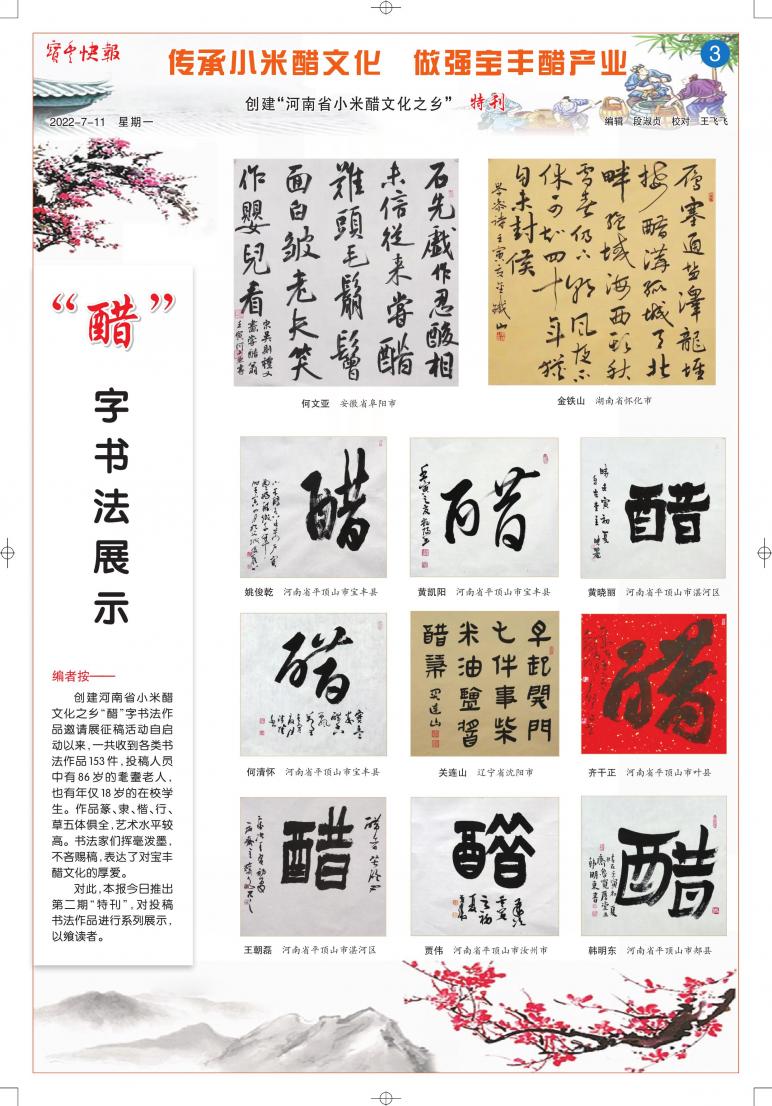 宝丰快报
传承小米醋文化 做强宝丰醋产业
3
创建“河南省小米醋文化之乡” 特刊
2022-7-11 星期一
编辑 段淑贞 校对 王飞飞
“醋”
字书法展示
编者按——
创建河南省小米醋
文化之乡“醋”字书法作
品邀请展征稿活动自启
动以来，一共收到各类书
法作品153件，投稿人员
中有86岁的耄耋老人，
也有年仅18岁的在校学
生。作品篆、隶、楷、行、
草五体俱全，艺术水平较
高。书法家们挥毫泼墨，
不吝赐稿，表达了对宝丰
醋文化的厚爱。
对此，本报今日推出
第二期“特刊”，对投稿
书法作品进行系列展示，
以飨读者。
石先戲作忍酸相
未信從来嘗醋
難頭毛鬅鬙
面白皱老夫笑
作嬰兒看
何文亚 安徽省阜阳市
雁塞通盐澤龍堆
接醋溝孤城天北
畔绝域海西頭秋
雪春仍下朝風夜不
休可知四十年猶
自未封侯
岑参诗壬寅夏金鐵山
金铁山 湖南省怀化市
醋
姚俊乾 河南省平顶山市宝丰县
醋
黄凯阳 河南省平顶山市宝丰县
醋
黄晓丽 河南省平顶山市湛河区
醋
何清怀 河南省平顶山市宝丰县
早起開門
七件事柴
米油鹽醬
醋葉
关连山 辽宁省沈阳市
醋
齐干正 河南省平顶山市叶县
醋
王朝磊 河南省平顶山市湛河区
醋
贾伟 河南省平顶山市汝州市
醋
韩明东 河南省平顶山市郏县